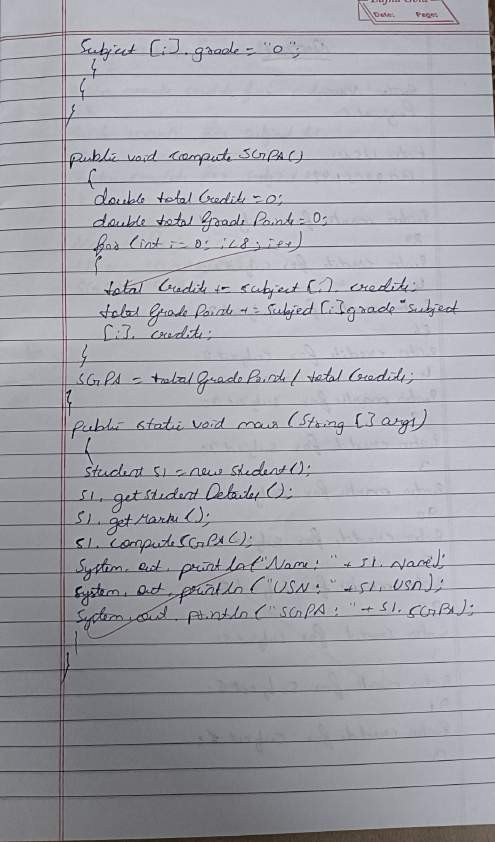 Date: Page:
Subject [i]. grade = "0";
}
}
}
public void compute SGPA()
{
double total Credits = 0;
double total Grade Points = 0;
for (int i = 0; i<8; i++)
{
total Credits += subject [i]. credits;
total Grade Points += subject [i] grade * subject
[i]. credits;
}
SGPA = total Grade Points / total Credits;
}
public static void main (String [] args)
{
Student S1 = new Student();
S1. get Student Details ();
S1. get Marks ();
S1. compute SGPA();
System. out. print ln ("Name: " + S1. Name);
System. out. println ("USN: " + S1. USN);
System. out. println ("SGPA: " + S1. SGPA);
}
}